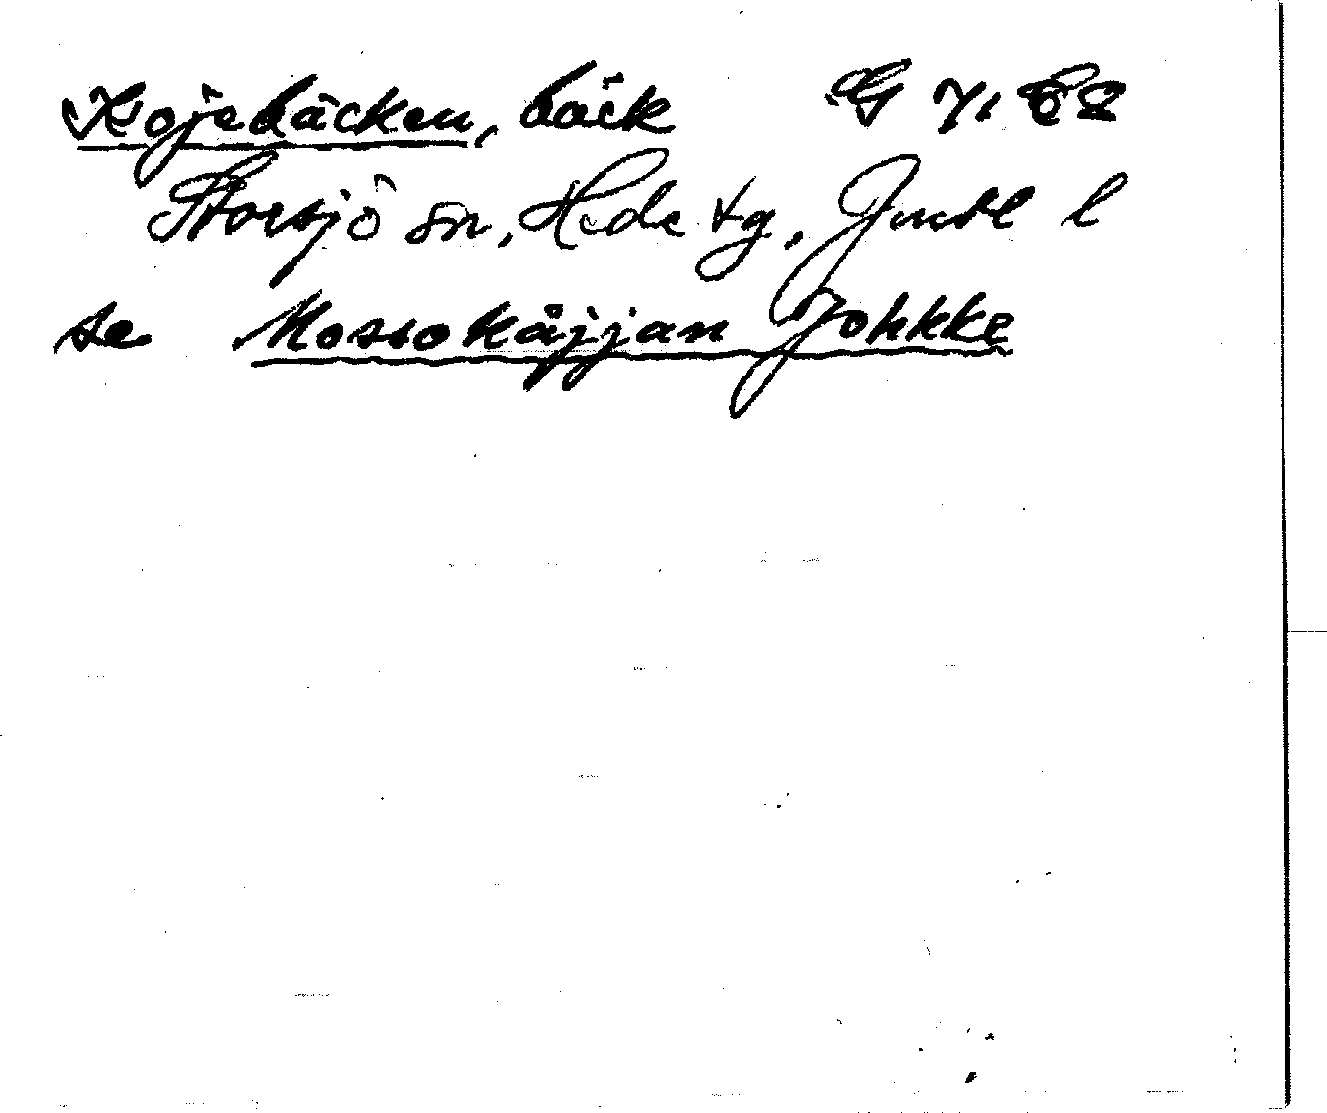 Kojebäcken, bäck G 71 C8
Storsjö sn, Hede tg, Jmtl l
se Mossokåjjan Johkke